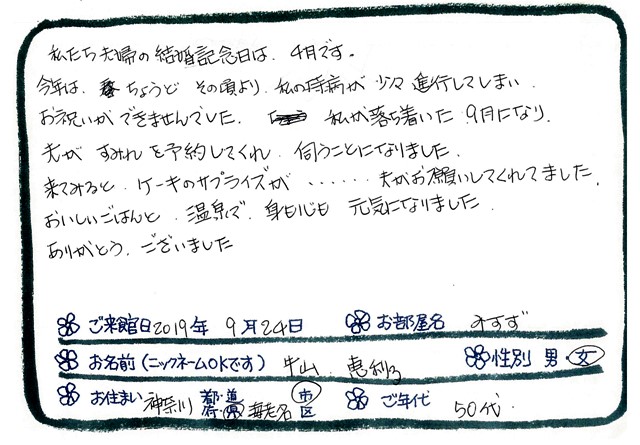 私たち夫婦の結婚記念日は、4月です。
今年は、ちょうど その頃より、私の持病が 少々 進行してしまい
お祝いが できませんでした。 私が落ち着いた 9月になり、
夫が すみれ を予約してくれ、伺うことになりました。
来てみると、ケーキのサプライズが ・・・・・・ 夫がお願いしてくれてました。
おいしいごはんと、温泉で、身も心も 元気になりました。
ありがとう、ございました
ご来館日 2019年 9月24日 お部屋名 みすず
お名前(ニックネームOKです) 牛山 恵利子 性別 男・女
お住まい 神奈川 都・道 府・県 海老名 市 区 ご年代 50代